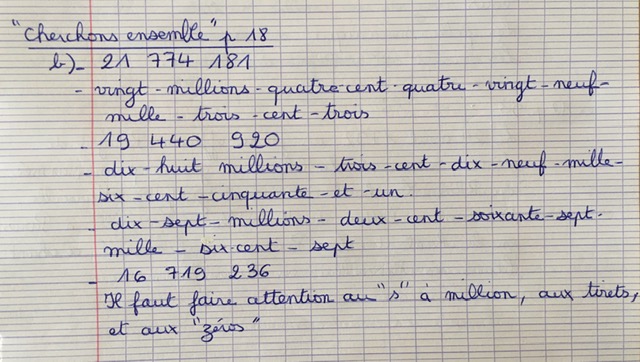 "Cherchons ensemble" p 18
b) - 21 774 181
- vingt - millions - quatre-cent-quatre-vingt-neuf-
mille - trois - cent - trois
- 19 440 920
- dix - huit millions - trois - cent - dix - neuf - mille -
six - cent - cinquante - et - un.
- dix - sept - millions - deux - cent - soixante - sept -
mille - six-cent - sept
- 16 719 236
Il faut faire attention au "s" à million, aux tirets,
et aux "zéros"